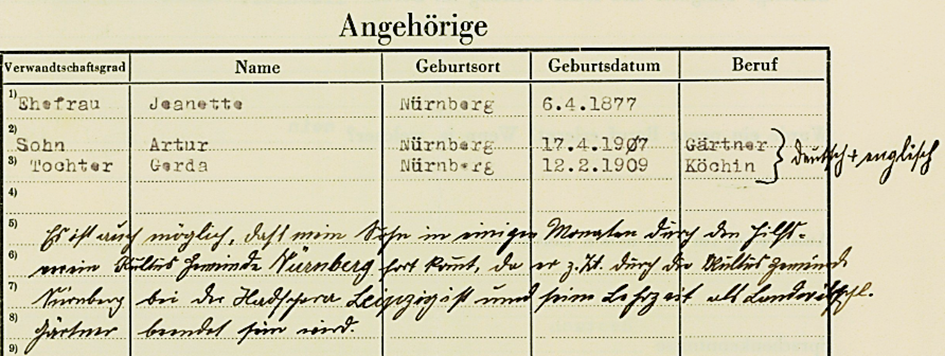 Angehörige
Verwandtschaftsgrad Name Geburtsort Geburtsdatum Beruf
1) Ehefrau Jeanette Nürnberg 6.4.1877
2) Sohn Artur Nürnberg 17.4.1907 Gärtner
3) Tochter Gerda Nürnberg 12.2.1909 Köchin } deutsch + englisch
4)
5) Es ist auch möglich, daß mein Sohn in einigen Monaten durch den Hilfs-
6) verein Kultus Gemeinde Nürnberg fort kommt, da er z. Zt. durch die Kultus Gemeinde
7) Nürnberg bei der Hadschera Leipzig ist und seine Lehrzeit als
8) Gärtner beendet sein wird.
9)